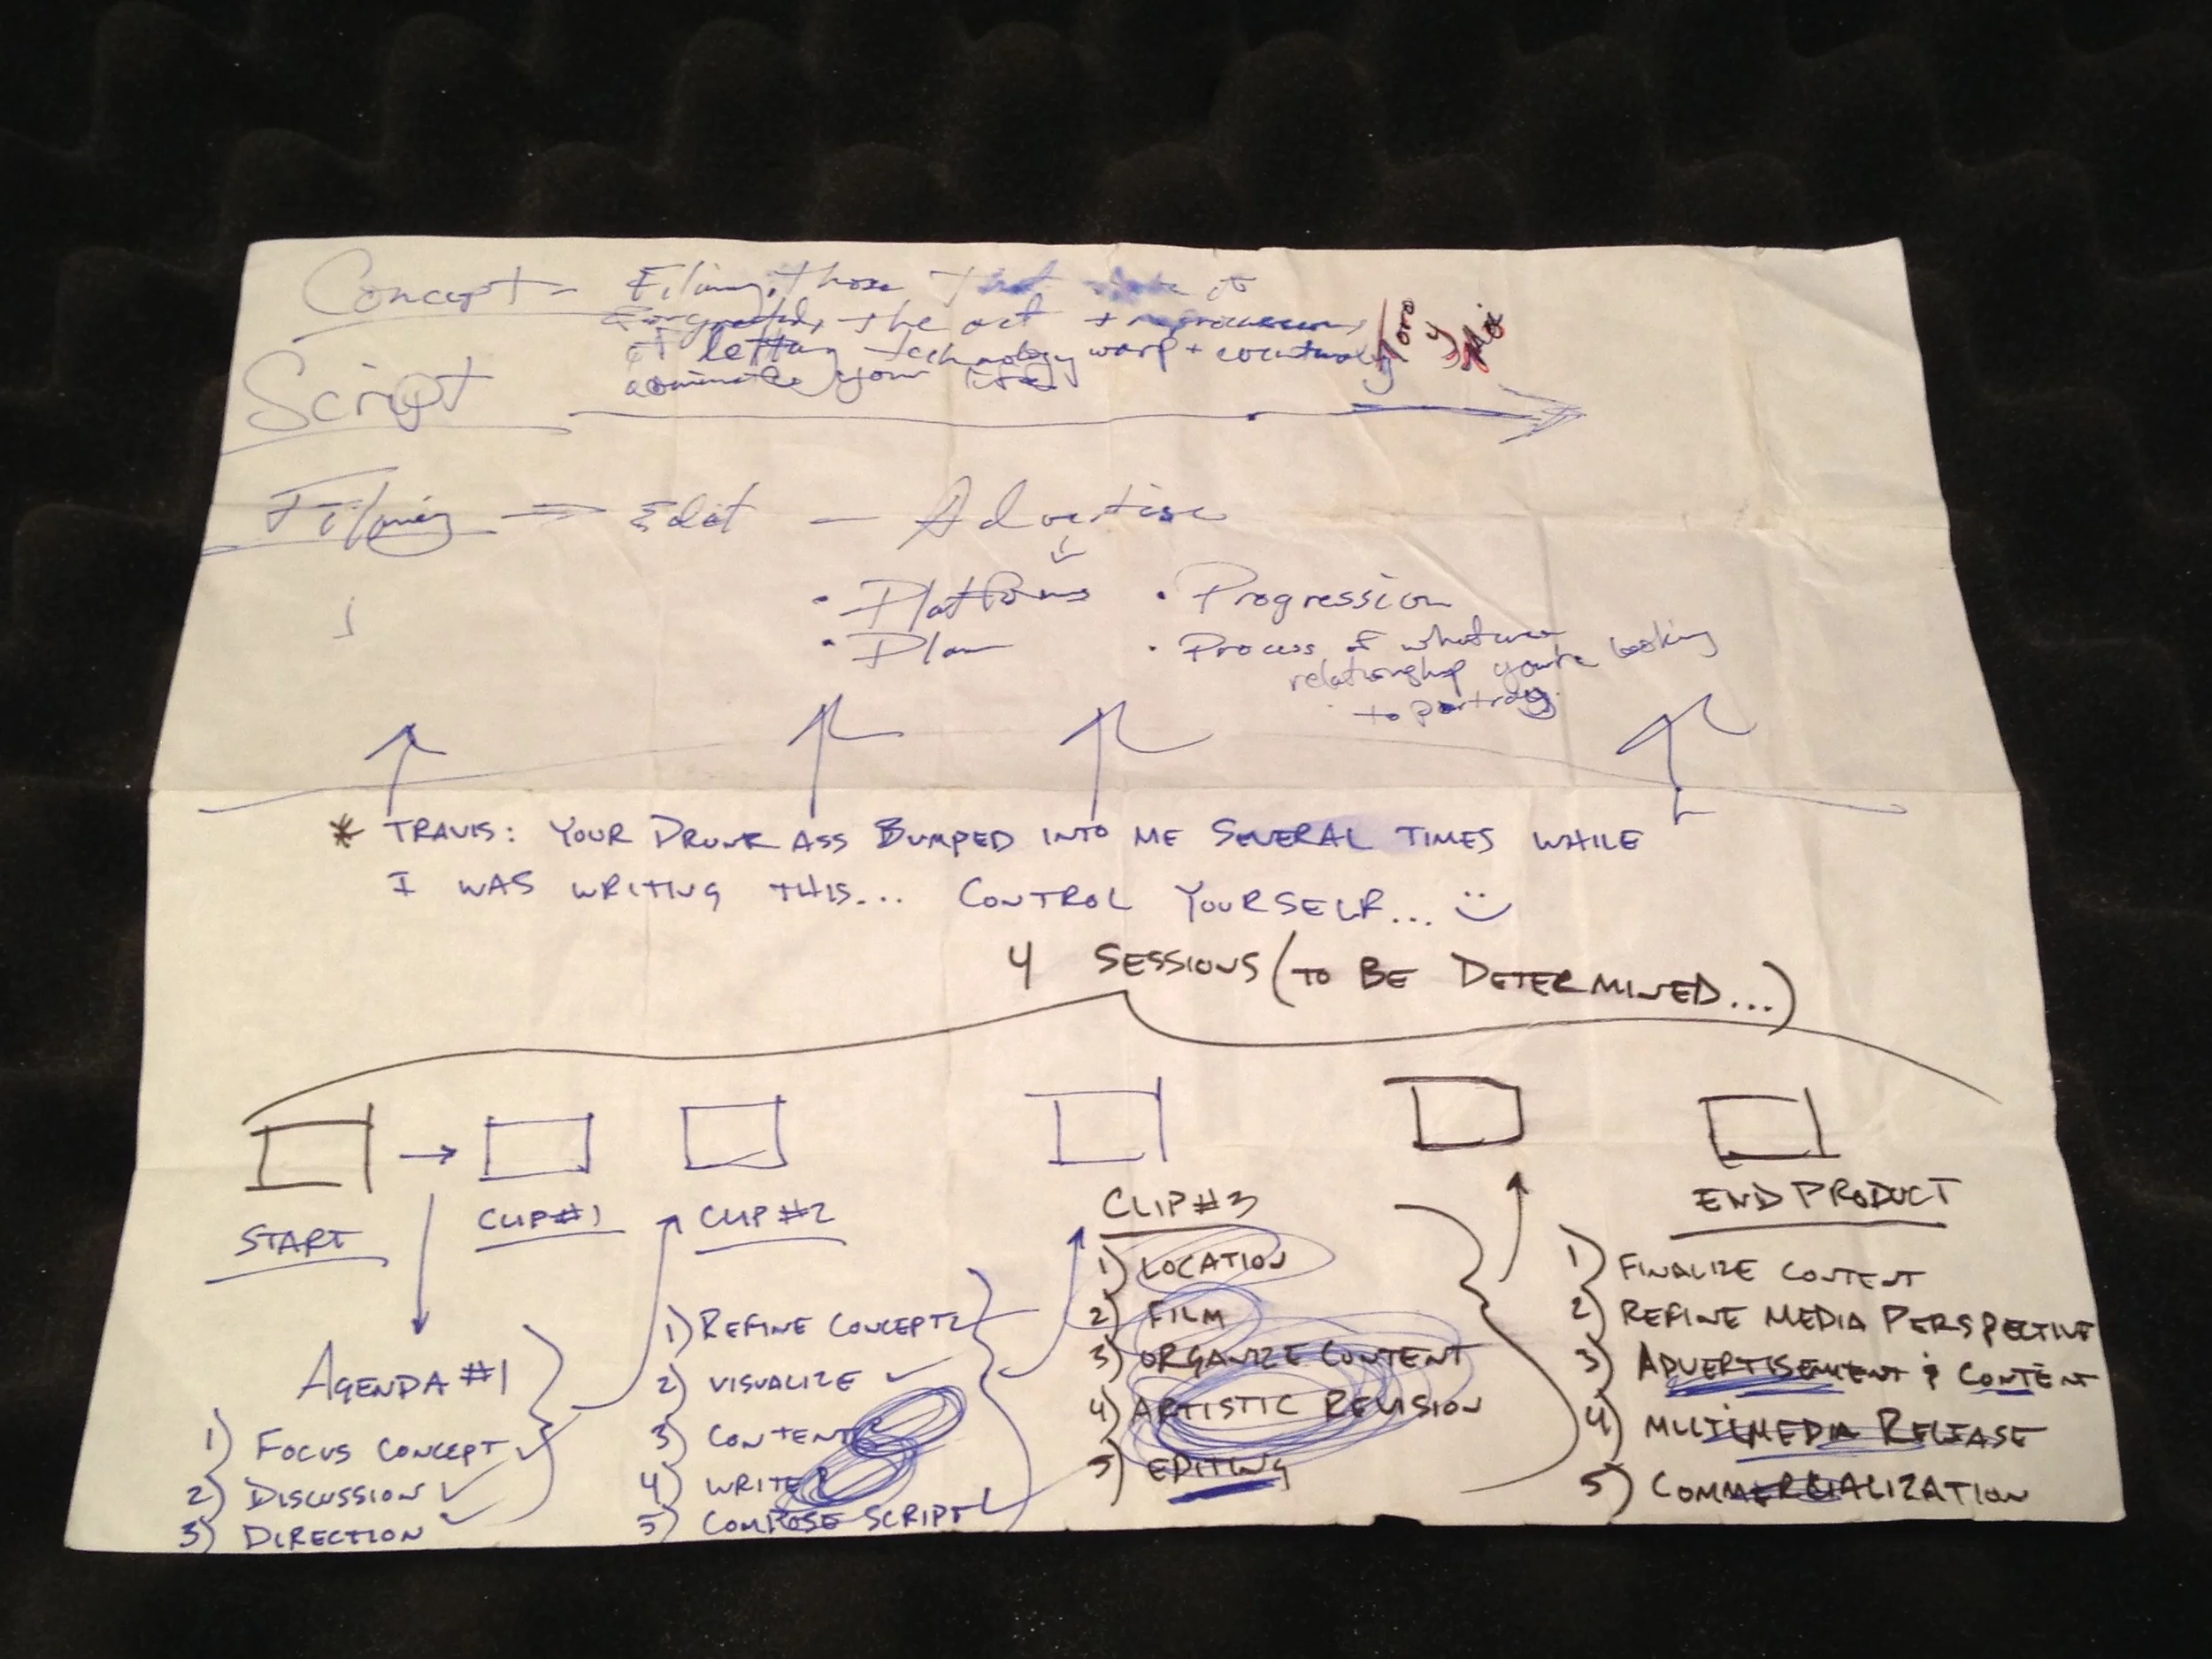 Concept - Filming those that
the act + repercussions
of letting technology warp +
dominate your life
Toro
y
Moi
Script
Filming → Edit — Advertise
• Platforms • Progression
• Plan • Process of whatever
relationship you're looking
to portray
* TRAVIS: YOUR DRUNK ASS BUMPED INTO ME SEVERAL TIMES WHILE
I WAS WRITING THIS... CONTROL YOURSELF... :)
4 SESSIONS (TO BE DETERMINED...)
START
CLIP #1
CLIP #2
CLIP #3
END PRODUCT
AGENDA #1
1) FOCUS CONCEPT ✓
2) DISCUSSION ✓
3) DIRECTION ✓
1) REFINE CONCEPT
2) VISUALIZE ✓
3) CONTENT
4) WRITE
5) COMPOSE SCRIPT
1) LOCATION
2) FILM
3) ORGANIZE CONTENT
4) ARTISTIC REVISION
5) EDITING
1) FINALIZE CONTENT
2) REFINE MEDIA PERSPECTIVE
3) ADVERTISEMENT & CONTENT
4) MULTIMEDIA RELEASE
5) COMMERCIALIZATION